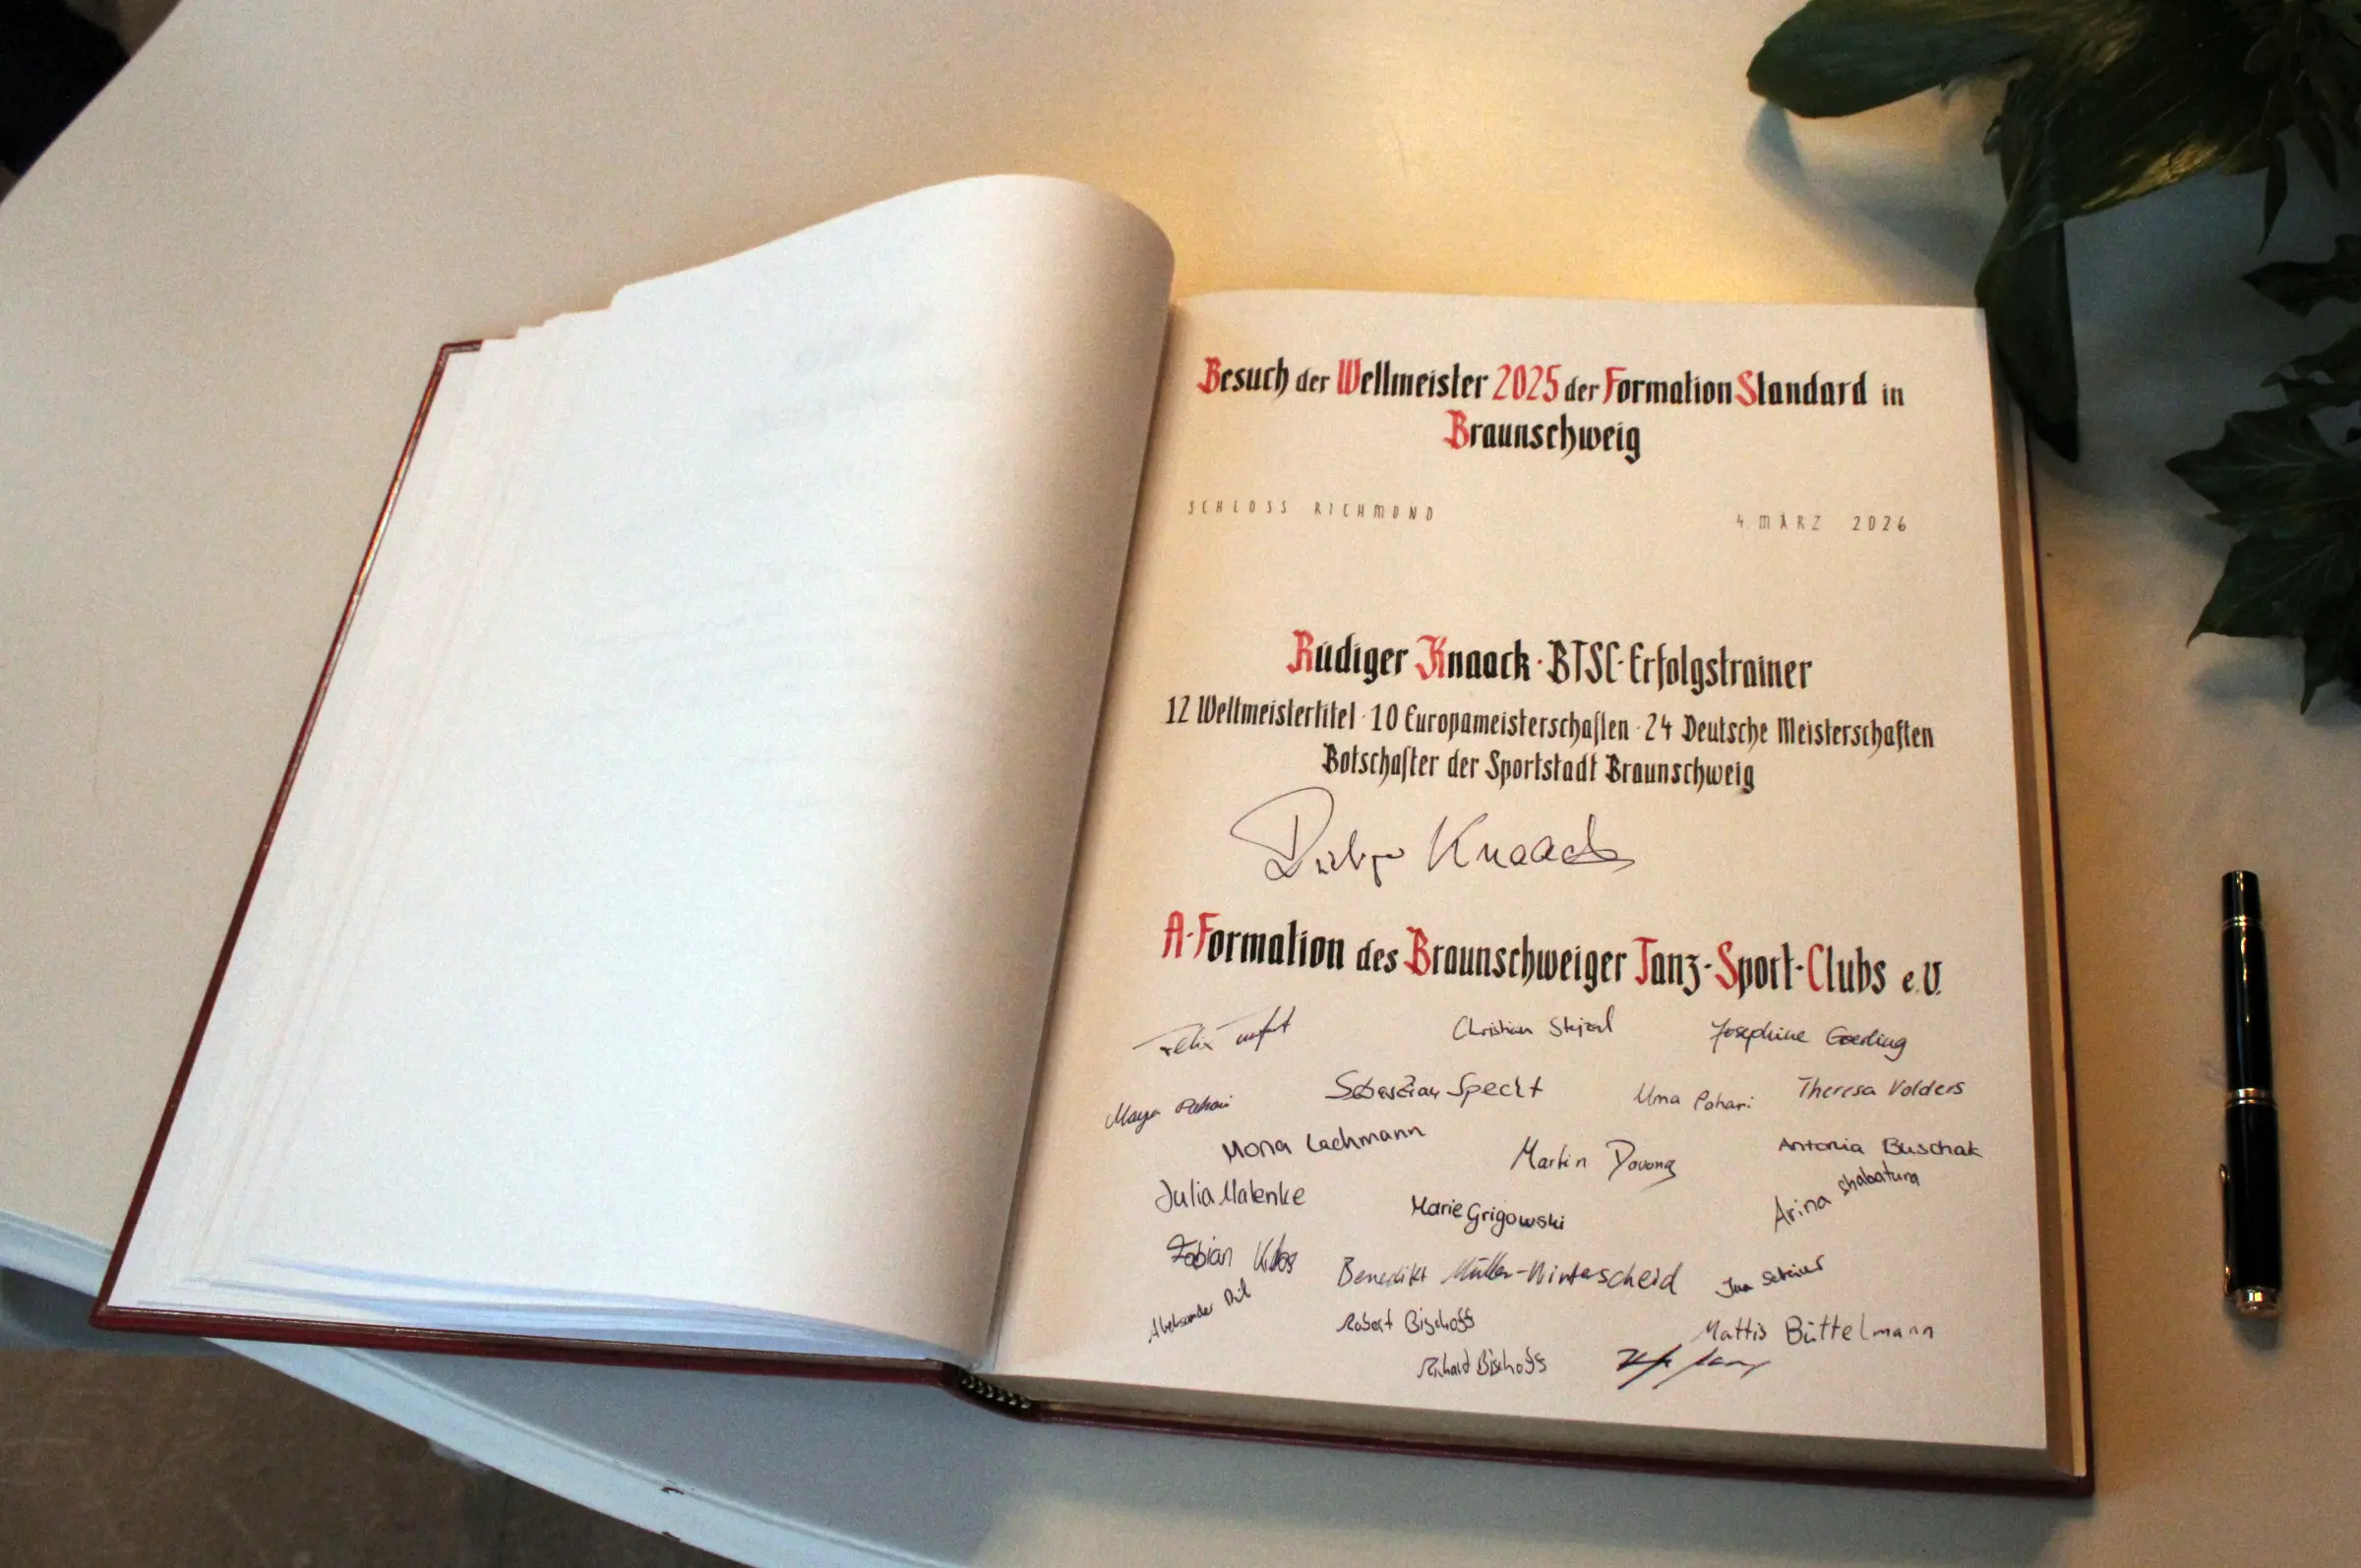 Besuch der Weltmeister 2025 der Formation Standard in
Braunschweig
SCHLOSS RICHMOND 4. MÄRZ 2026
Rüdiger Knaack · BTSC-Erfolgstrainer
12 Weltmeistertitel · 10 Europameisterschaften · 24 Deutsche Meisterschaften
Botschafter der Sportstadt Braunschweig
Knaack
A-Formation des Braunschweiger Tanz-Sport-Clubs e.V.
Felix Christian Josephine Goerling
Maya Sebastian Specht Uma Pahari Theresa Volders
Mona Lachmann Martin Antonia Buschak
Julia Malenke Marie Grigowski Arina Shabatura
Fabian Klos Benedikt Müller-Winterscheid
Robert Bischoff Mattis Büttelmann
Richard Bischoff